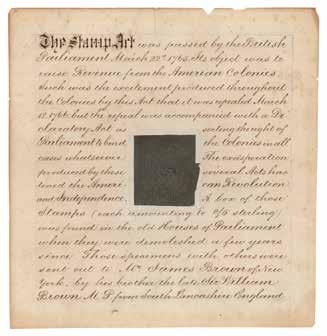 The Stamp Act was passed by the British
Parliament March 22d 1765. Its object was to
raise Revenue from the American Colonies.
Such was the excitement produced throughout
the Colonies by this Act that it was repealed March
18. 1766 but the repeal was accompanied with a De
claratory Act as serting the right of
Parliament to bind the Colonies in all
cases whatsoever The exasperation
produced by these several Acts has
tened the Ameri can Revolution
and Independence. A box of those
Stamps (each amounting to 2/6 sterling)
was found in the old Houses of Parliament
when they were demolished a few years
since Those specimens with others were
sent out to Mr James Brown of New
York, by his brother the late Sir William
Brown M P from South Lancashire England